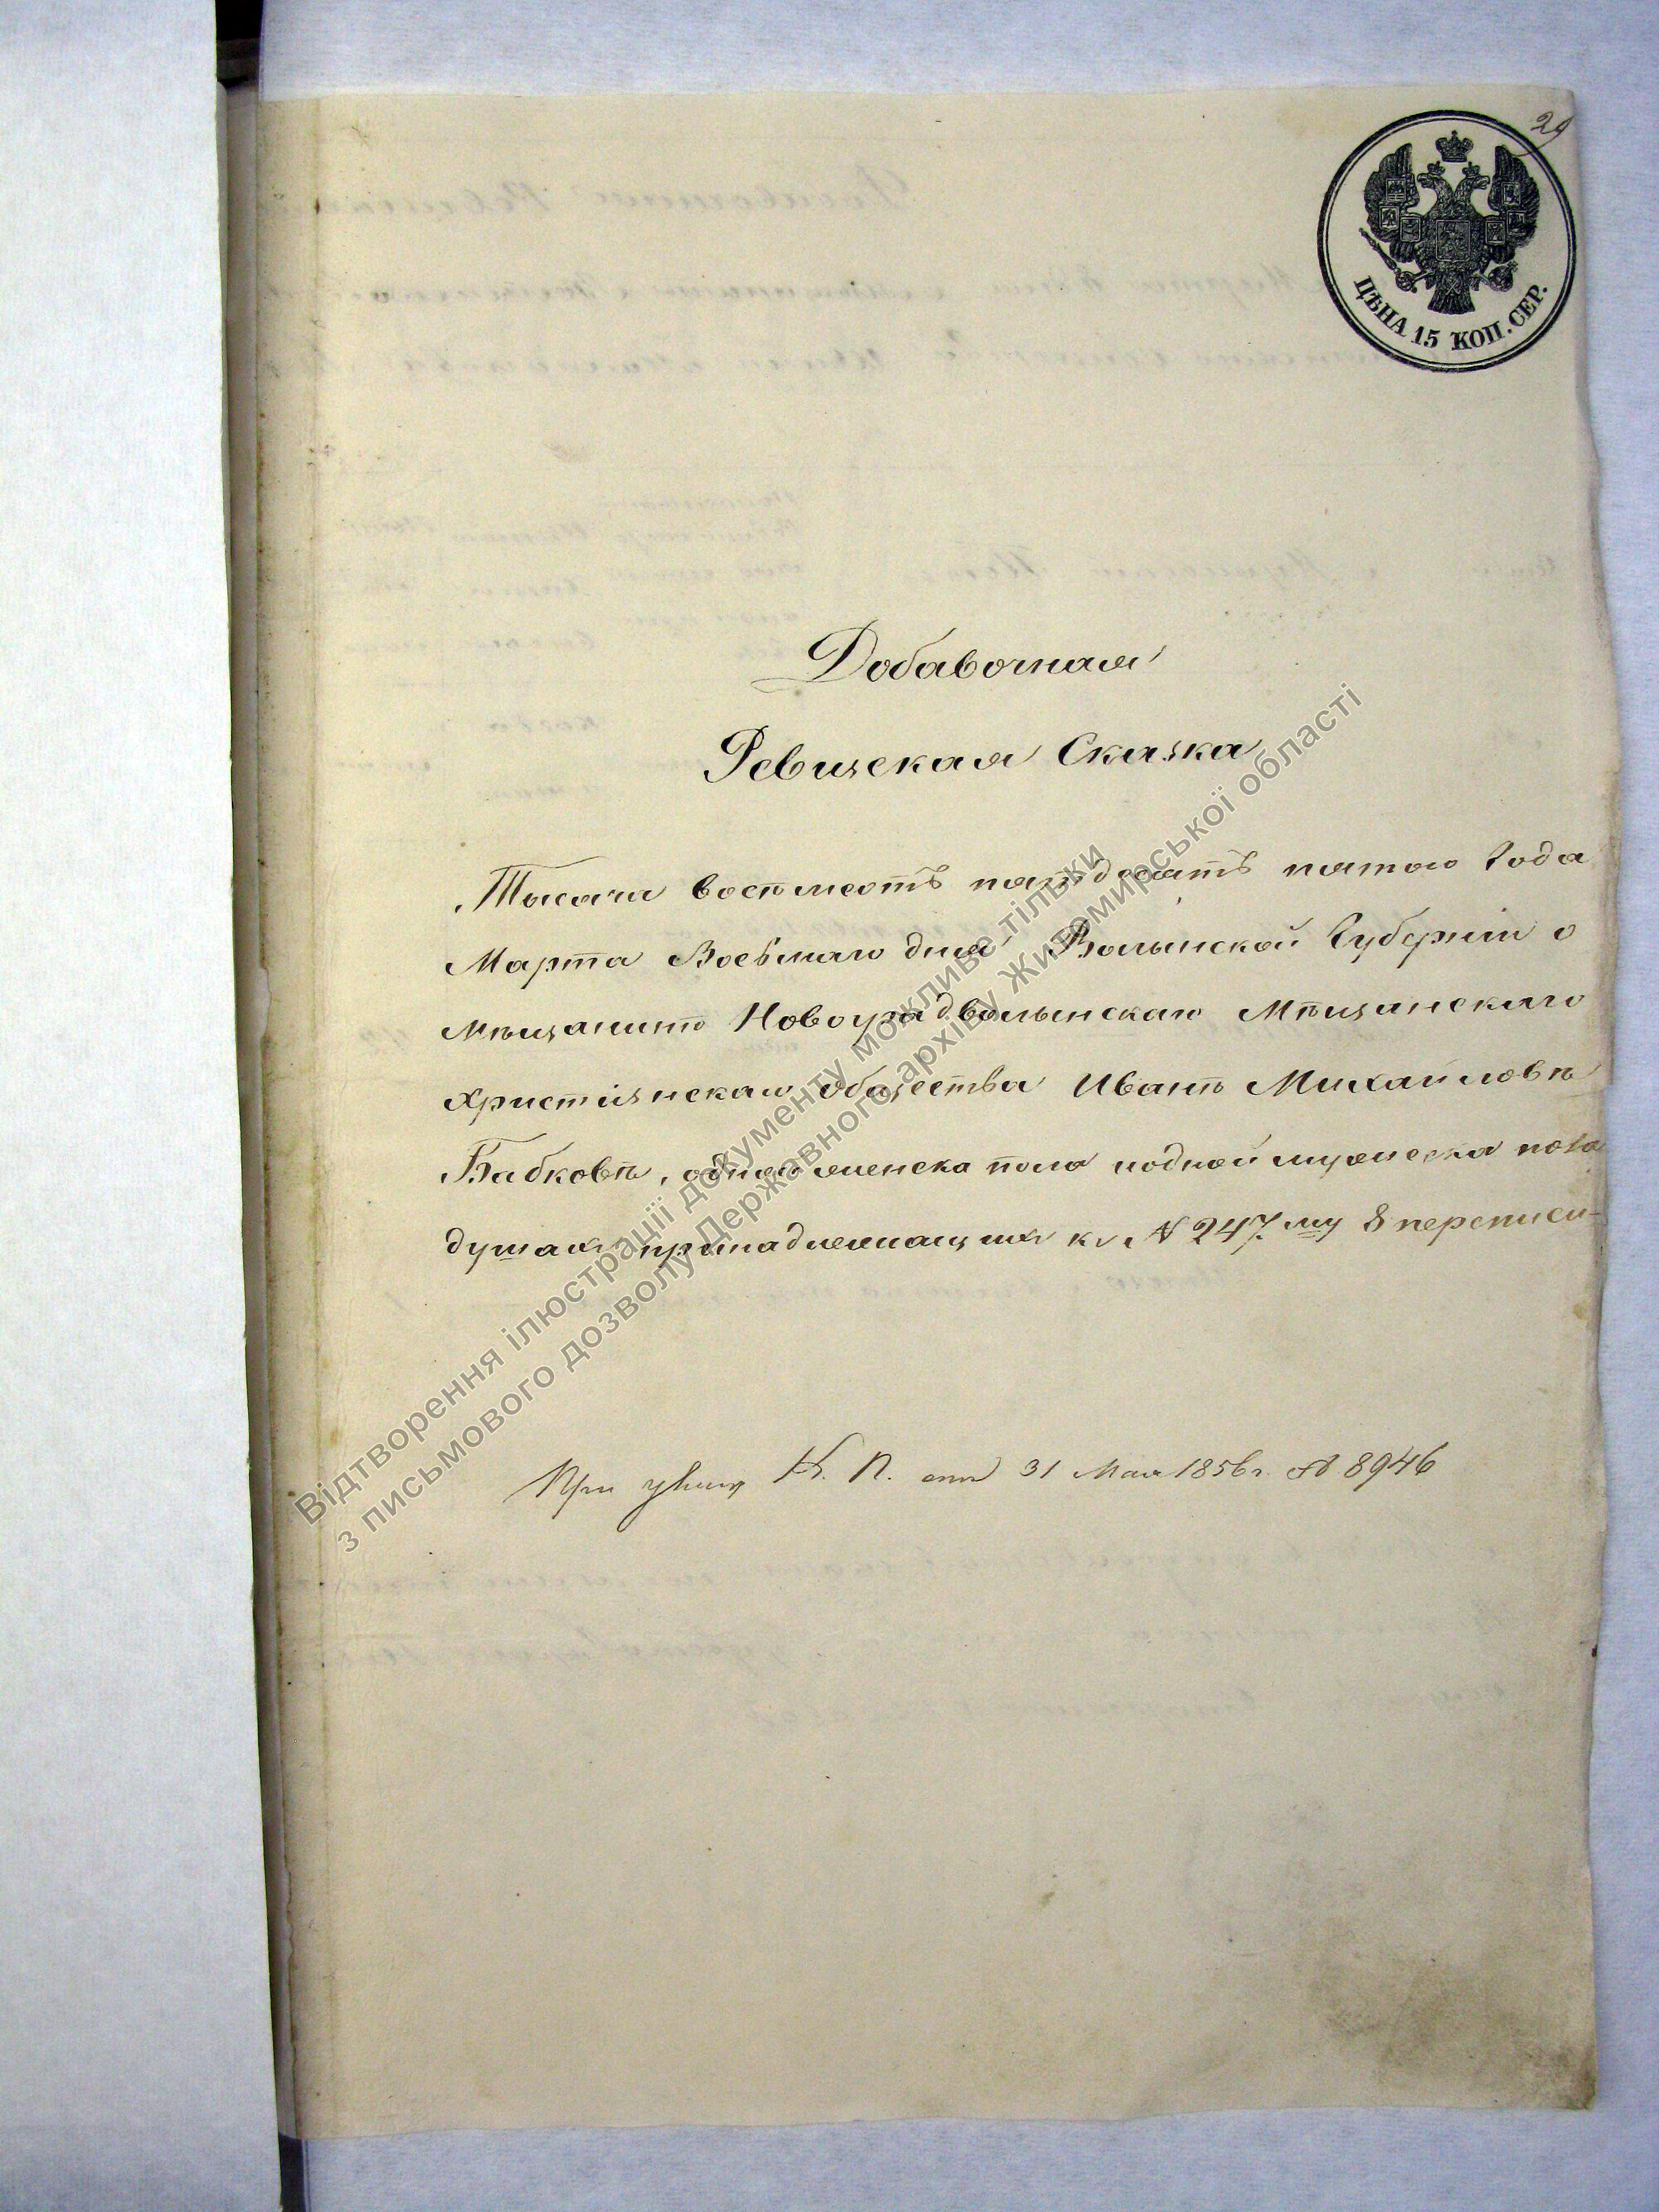 29
ЦѢНА 15 КОП. СЕР.
Добавочная
Ревизская Сказка
Тысяча восемьсотъ пятьдесятъ пятого года
Марта Восьмаго дня Волынской Губерніи о
мѣщанинѣ Новоградволынскаго Мѣщанскаго
христіянскаго общества Иванѣ Михайловѣ
Бабковѣ, однои женска пола иодной мужеска пола
душахъ принадлежащихъ къ № 247му 8 переписи
При указѣ К. П. отъ 31 Мая 1856 г. № 8946
Відтворення ілюстрації документу можливе тільки
з письмового дозволу Державного архіву Житомирської області